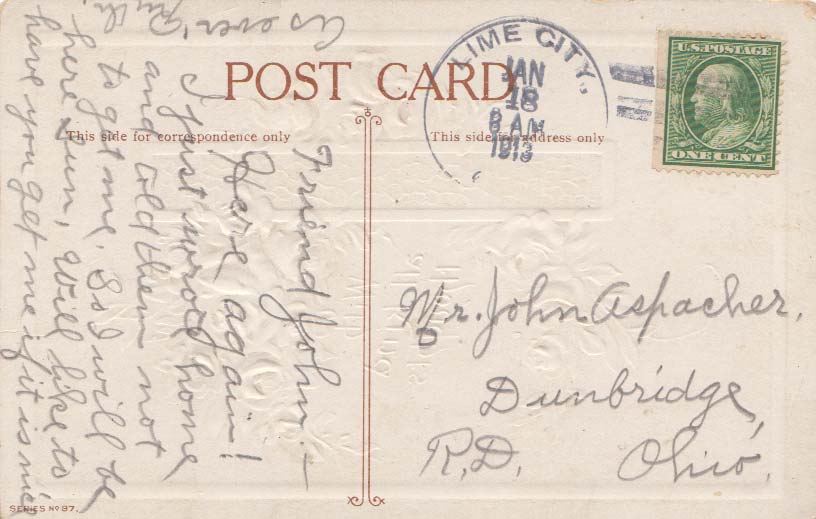 POST CARD
This side for correspondence only
This side for address only
LIME CITY,
JAN
18
8 AM
1913
U.S. POSTAGE
ONE CENT
Friend John. —
Here again!
I just wrote home
and told them not
to get me. So I will be
here Sun, Will like to
have you get me if it is nice
As ever Ruth.
Mr. John Aspacher,
Dunbridge,
R.D. Ohio.
SERIES No 97.